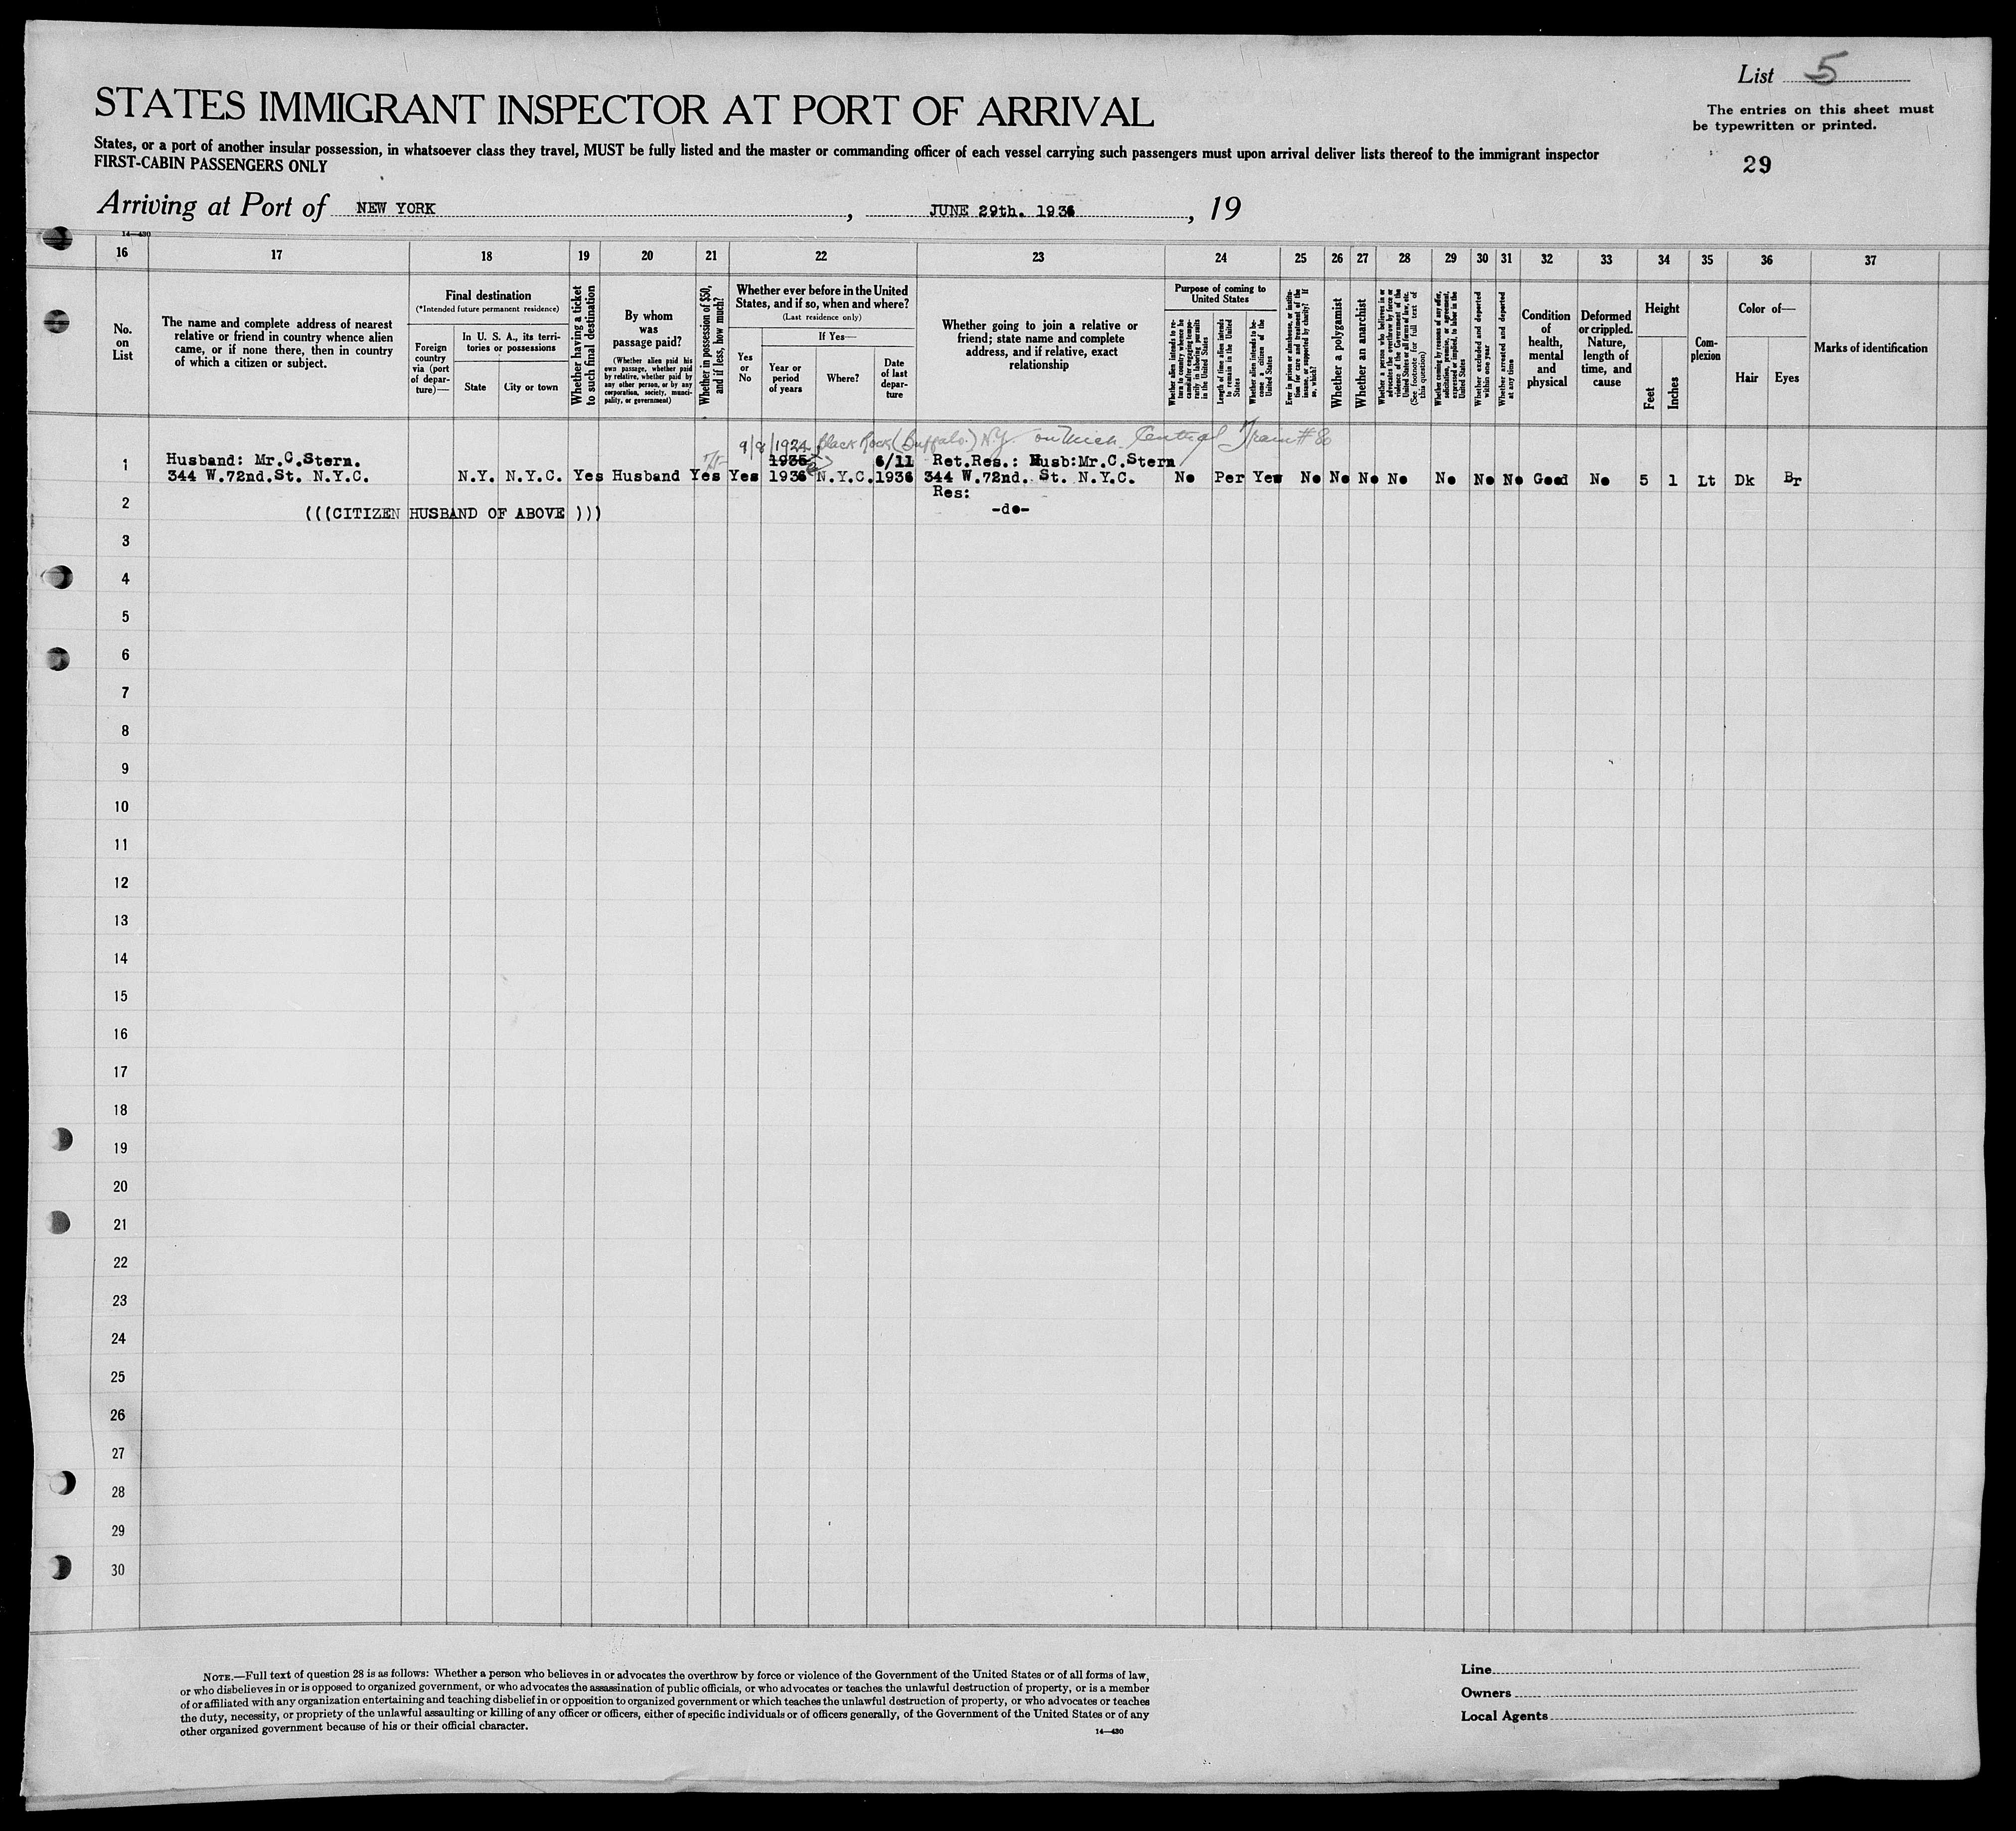 List 5
STATES IMMIGRANT INSPECTOR AT PORT OF ARRIVAL
The entries on this sheet must
be typewritten or printed.
States, or a port of another insular possession, in whatsoever class they travel, MUST be fully listed and the master or commanding officer of each vessel carrying such passengers must upon arrival deliver lists thereof to the immigrant inspector
FIRST-CABIN PASSENGERS ONLY
29
Arriving at Port of NEW YORK , JUNE 29th. 1936 , 19
14—430
16 17 18 19 20 21 22 23 24 25 26 27 28 29 30 31 32 33 34 35 36 37
No.
on
List
The name and complete address of nearest
relative or friend in country whence alien
came, or if none there, then in country
of which a citizen or subject.
Final destination
(*Intended future permanent residence)
Foreign
country
via (port
of depar-
ture)—
In U. S. A., its terri-
tories or possessions
State
City or town
Whether having a ticket
to such final destination
By whom
was
passage paid?
(Whether alien paid his
own passage, whether paid
by relative, whether paid by
any other person, or by any
corporation, society, munici-
pality, or government)
Whether in possession of $50,
and if less, how much?
Whether ever before in the United
States, and if so, when and where?
(Last residence only)
Yes
or
No
If Yes—
Year or
period
of years
Where?
Date
of last
depar-
ture
Whether going to join a relative or
friend; state name and complete
address, and if relative, exact
relationship
Purpose of coming to
United States
Whether alien intends to re-
turn to country whence he
came after engaging tempo-
rarily in laboring pursuits
in the United States
Length of time alien intends
to remain in the United
States
Whether alien intends to be-
come a citizen of the
United States
Ever in prison or almshouse, or institu-
tion for care and treatment of the
insane, or supported by charity? If
so, which?
Whether a polygamist
Whether an anarchist
Whether a person who believes in or
advocates the overthrow by force or
violence of the Government of the
United States or all forms of law, etc.
(See footnote for full text of
this question)
Whether coming by reasons of any offer,
solicitation, promise, or agreement,
expressed or implied, to labor in the
United States
Whether excluded and deported
within one year
Whether arrested and deported
at any time
Condition
of
health,
mental
and
physical
Deformed
or crippled.
Nature,
length of
time, and
cause
Height
Feet
Inches
Com-
plexion
Color of—
Hair
Eyes
Marks of identification
9/8/1924 Black Rock (Buffalo) N.Y. on Mich. Central Train # 80
1 Husband: Mr.C.Stern. 1935 6/11 Ret.Res.: Husb:Mr.C.Stern
344 W.72nd.St. N.Y.C. N.Y. N.Y.C. Yes Husband Yes Yes 1936 N.Y.C. 1936 344 W.72nd. St. N.Y.C. No Per Yes No No No No No No No Good No 5 1 Lt Dk Br
Res:
2 (((CITIZEN HUSBAND OF ABOVE ))) -do-
3
4
5
6
7
8
9
10
11
12
13
14
15
16
17
18
19
20
21
22
23
24
25
26
27
28
29
30
NOTE.—Full text of question 28 is as follows: Whether a person who believes in or advocates the overthrow by force or violence of the Government of the United States or of all forms of law,
or who disbelieves in or is opposed to organized government, or who advocates the assassination of public officials, or who advocates or teaches the unlawful destruction of property, or is a member
of or affiliated with any organization entertaining and teaching disbelief in or opposition to organized government or which teaches the unlawful destruction of property, or who advocates or teaches
the duty, necessity, or propriety of the unlawful assaulting or killing of any officer or officers, either of specific individuals or of officers generally, of the Government of the United States or of any
other organized government because of his or their official character.
14—430
Line
Owners
Local Agents